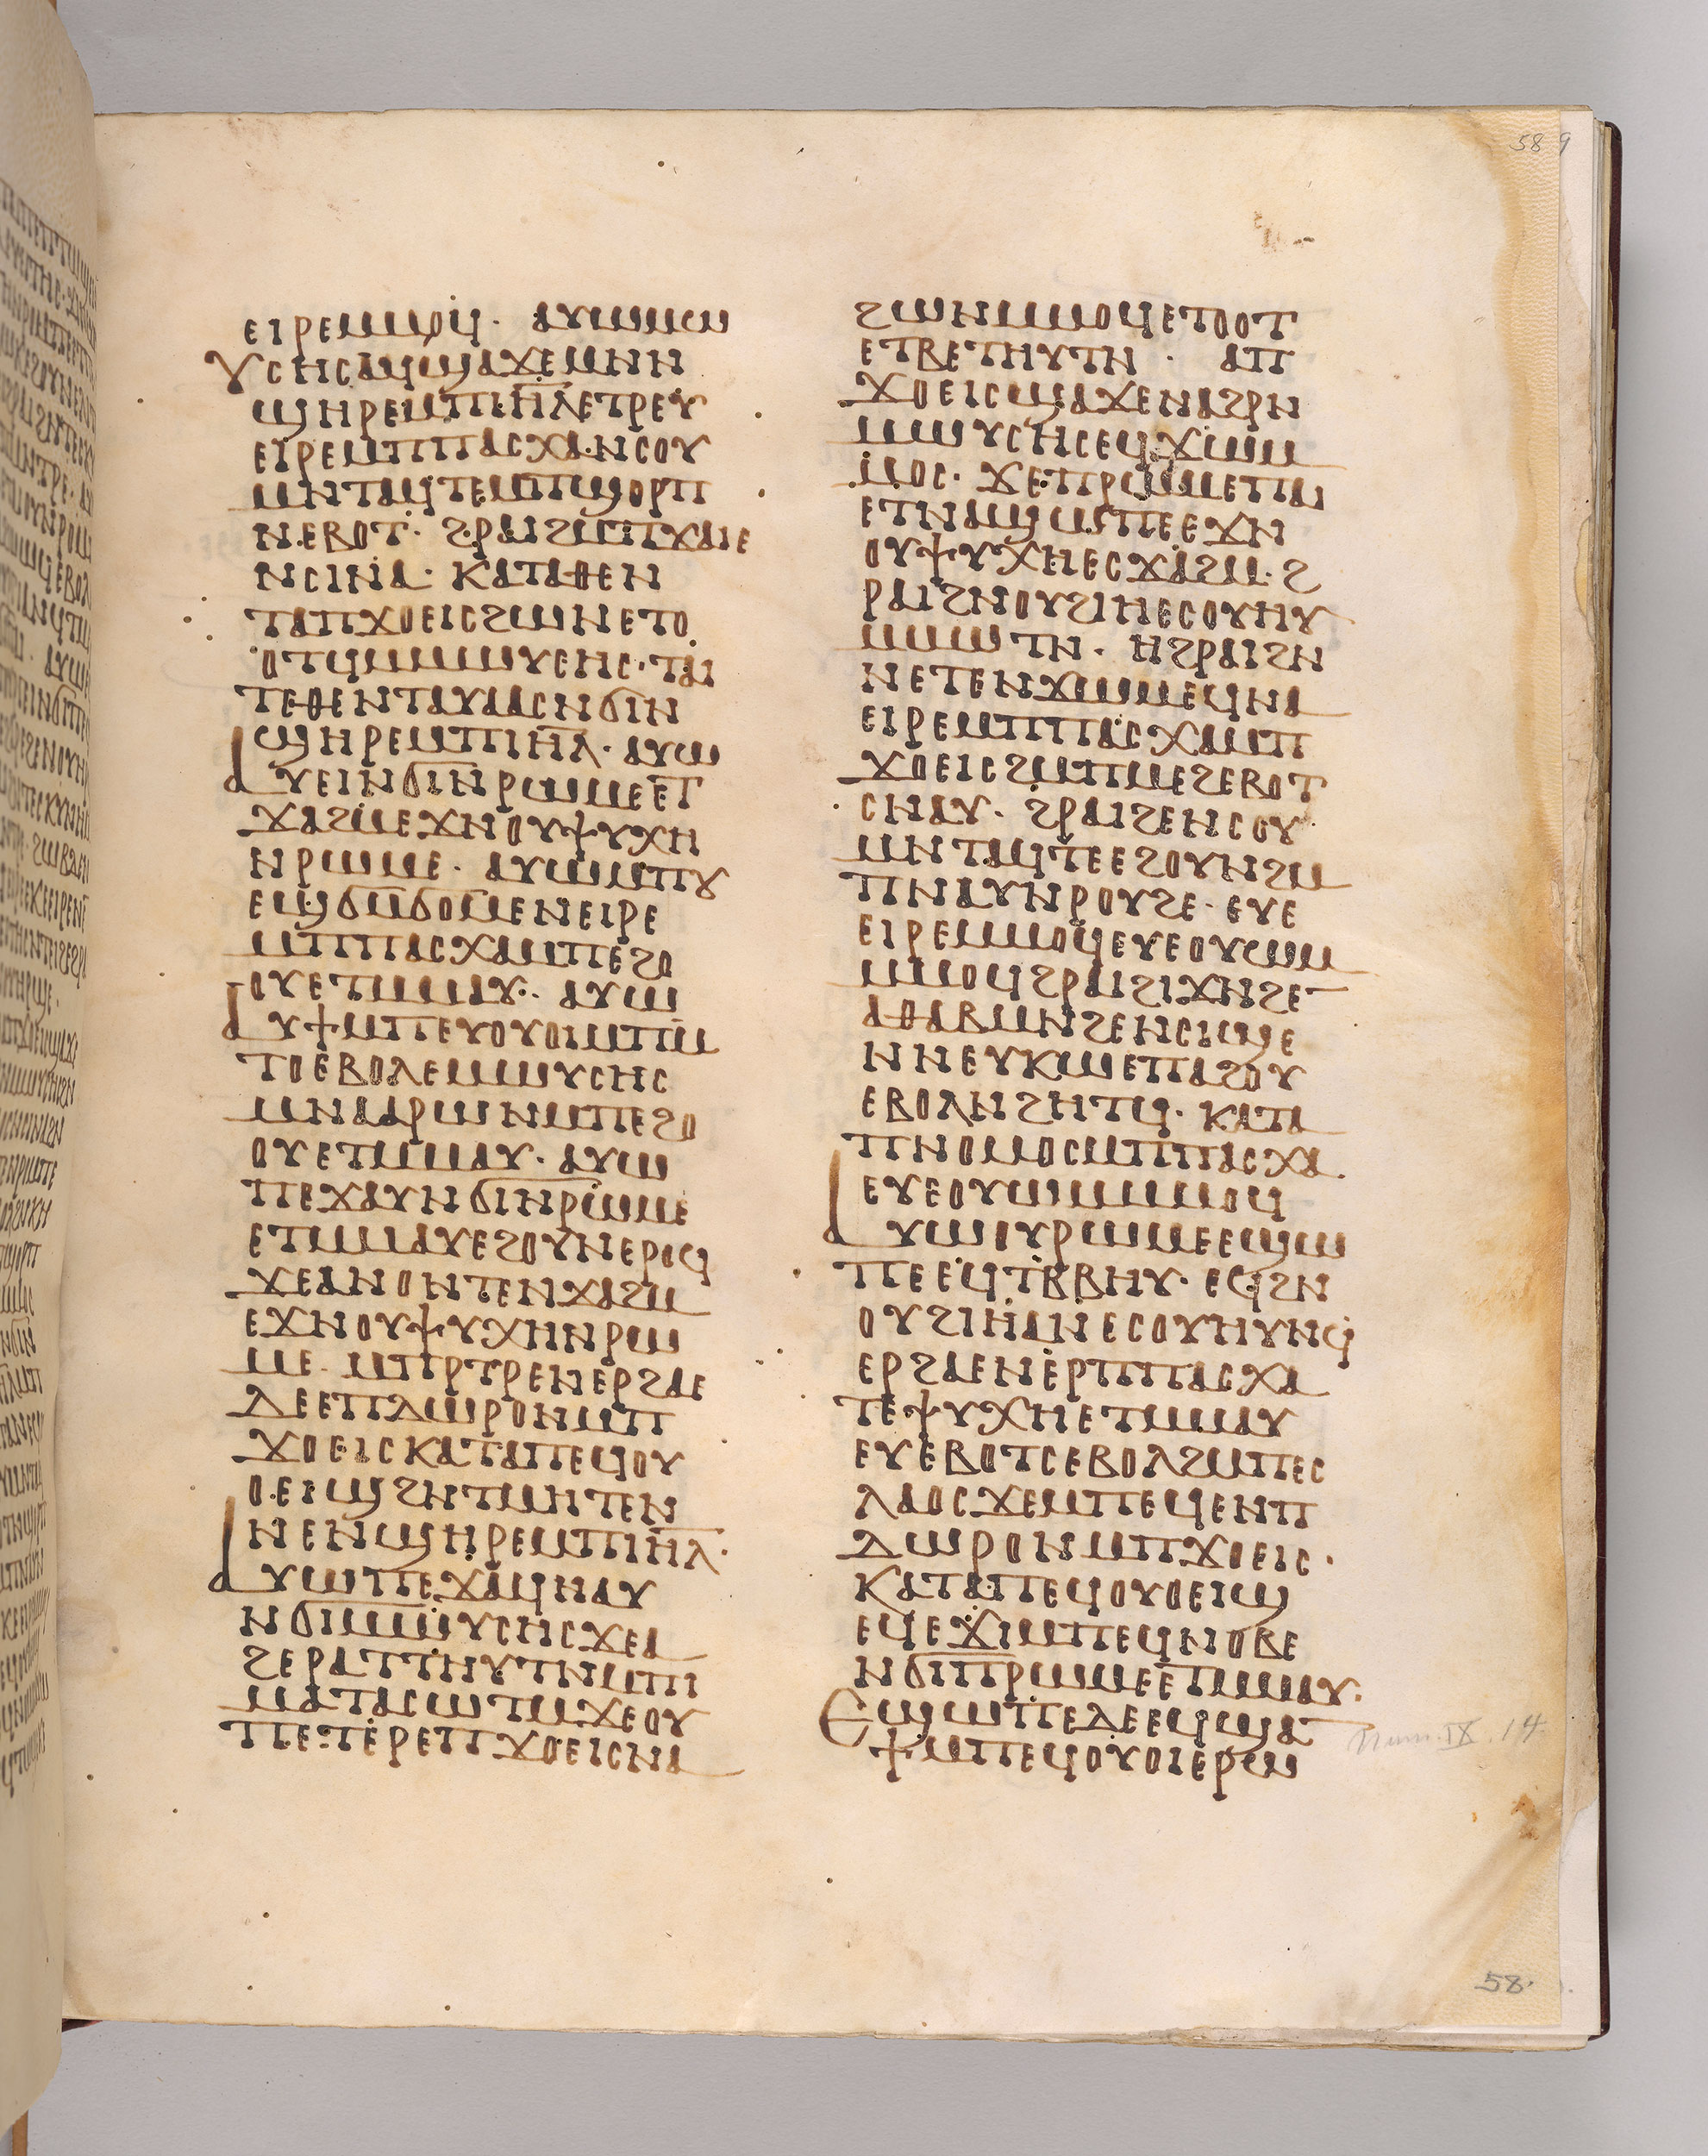 ⲉⲓⲣⲉⲙⲙⲟϥ· ⲁⲩⲱⲙⲱ
ⲩⲥⲏⲥⲁϥϣⲁϫⲉⲙⲛⲛ
ϣⲏⲣⲉⲙⲡⲓⲏ̅ⲗ̅ⲉⲧⲣⲉⲩ
ⲉⲓⲣⲉⲙⲡⲡⲁⲥⲭⲁ·ⲛⲥⲟⲩ
ⲙⲛⲧⲁϥⲧⲉⲙⲡϣⲟⲣⲡ
ⲛⲉⲃⲟⲧ· ϩⲣⲁⲓϩⲙⲡϫⲁⲓⲉ
ⲛⲥⲓⲛⲁ· ⲕⲁⲧⲁⲑⲉⲛ
ⲧⲁⲡϫⲟⲉⲓⲥϩⲱⲛⲉⲧⲟ
ⲟⲧϥⲙⲙⲱⲩⲥⲏⲥ·ⲧⲁⲓ
ⲧⲉⲑⲉⲛⲧⲁⲩⲁⲁⲥⲛϭⲓⲛ
ϣⲏⲣⲉⲙⲡⲓⲏ̅ⲗ̅· ⲁⲩⲱ
ⲁⲩⲉⲓⲛϭⲓⲛⲣⲱⲙⲉⲉⲧ
ϫⲁϩⲙⲉϫⲛⲟⲩⲯⲩⲭⲏ
ⲛⲣⲱⲙⲉ· ⲁⲩⲱⲙⲡⲟⲩ
ⲉϣϭⲙϭⲟⲙⲉⲛⲉⲓⲣⲉ
ⲙⲡⲡⲁⲥⲭⲁⲙⲡⲉϩⲟ
ⲟⲩⲉⲧⲙⲙⲁⲩ·· ⲁⲩⲱ
ⲁⲩϯⲙⲡⲉⲩⲟⲩⲟⲓⲙⲡⲙ
ⲧⲟⲉⲃⲟⲗⲉⲙⲙⲱⲩⲥⲏⲥ
ⲙⲛⲁⲁⲣⲱⲛⲙⲡⲉϩⲟ
ⲟⲩⲉⲧⲙⲙⲁⲩ· ⲁⲩⲱ
ⲡⲉϫⲁⲩⲛϭⲓⲛⲣⲱⲙⲉ
ⲉⲧⲙⲙⲁⲩⲉϩⲟⲩⲛⲉⲣⲟϥ
ϫⲉⲁⲛⲟⲛⲧⲉⲛϫⲁϩⲙ
ⲉϫⲛⲟⲩⲯⲩⲭⲏⲛⲣⲱ
ⲙⲉ· ⲙⲡⲣⲧⲣⲉⲛⲉⲣϩⲁⲉ
ⲇⲉⲉⲡⲇⲱⲣⲟⲛⲙⲡ
ϫⲟⲉⲓⲥⲕⲁⲧⲁⲡⲉϥⲟⲩ
ⲟⲉⲓϣϩⲛⲧⲙⲏⲧⲉⲛ
ⲛⲉⲛϣⲏⲣⲉⲙⲡⲓⲏ̅ⲗ̅·
ⲁⲩⲱⲡⲉϫⲁϥⲛⲁⲩ
ⲛϭⲓⲙⲱⲩⲥⲏⲥϫⲉⲁ
ϩⲉⲣⲁⲧⲧⲏⲩⲧⲛⲙⲡⲓ
ⲙⲁⲧⲁⲥⲱⲧⲙϫⲉⲟⲩ
ⲡⲉⲧⲉⲣⲉⲡϫⲟⲉⲓⲥⲛⲁ
ϩⲱⲛⲙⲙⲟϥⲉⲧⲟⲟⲧ
ⲉⲧⲃⲉⲧⲏⲩⲧⲛ · ⲁⲡ
ϫⲟⲉⲓⲥϣⲁϫⲉⲛⲁϩⲣⲛ
ⲙⲱⲩⲥⲏⲥⲉϥϫⲱⲙ
ⲙⲟⲥ· ϫⲉⲡⲣⲱⲙⲉⲡⲁⲓ
ⲉⲧⲛⲁϣⲱⲡⲉⲉϫⲛ
ⲟⲩⲯⲩⲭⲏⲉⲥϫⲁϩⲙ·ϩ
ⲣⲁⲓϩⲛⲟⲩϩⲓⲏⲉⲥⲟⲩⲏⲩ
ⲙⲙⲱⲧⲛ· ⲏϩⲣⲁⲓϩⲛ
ⲛⲉⲧⲉⲛϫⲱⲙⲉϥⲛⲁ
ⲉⲓⲣⲉⲙⲡⲡⲁⲥⲭⲁⲙⲡ
ϫⲟⲉⲓⲥϩⲙⲡⲙⲉϩⲉⲃⲟⲧ
ⲥⲛⲁⲩ· ϩⲣⲁⲓϩⲉⲛⲥⲟⲩ
ⲙⲛⲧⲁϥⲧⲉⲉϩⲟⲩⲛϩⲙ
ⲡⲛⲁⲩⲛⲣⲟⲩϩⲉ· ⲉⲩⲉ
ⲉⲓⲣⲉⲙⲙⲟϥⲉⲩⲉⲟⲩⲱⲙ
ⲙⲙⲟϥϩⲣⲁⲓϩⲓϫⲛϩⲉⲛ
ⲁⲑⲁⲃⲙⲛϩⲉⲛⲥⲓϣⲉ
ⲛⲛⲉⲩⲕⲱⲉⲡⲁϩⲟⲩ
ⲉⲃⲟⲗⲛϩⲏⲧϥ· ⲕⲁⲧⲁ
ⲡⲛⲟⲙⲟⲥⲙⲡⲡⲁⲥⲭⲁ
ⲉⲩⲉⲟⲩⲱⲙⲙⲙⲟϥ
ⲁⲩⲱⲟⲩⲣⲱⲙⲉⲉϣⲱ
ⲡⲉⲉϥⲧⲃⲃⲏⲩ· ⲉϥϩⲛ
ⲟⲩϩⲓⲏⲁⲛⲉⲥⲟⲩⲏⲩⲛϥ
ⲉⲣϩⲁⲉⲛⲉⲣⲡⲡⲁⲥⲭⲁ
ⲧⲉⲯⲩⲭⲏⲉⲧⲙⲙⲁⲩ
ⲉⲩⲉⲃⲟⲧⲥⲉⲃⲟⲗϩⲙⲡⲉⲥ
ⲗⲁⲟⲥϫⲉⲙⲡⲉϥⲉⲛⲡ
ⲇⲱⲣⲟⲛⲙⲡϫⲟⲉⲓⲥ·
ⲕⲁⲧⲁⲡⲉϥⲟⲩⲟⲉⲓϣ
ⲉϥⲉϫⲓⲙⲡⲉϥⲛⲟⲃⲉ
ⲛϭⲓⲡⲣⲱⲙⲉⲉⲧⲙⲙⲁⲩ·
ⲉϣⲱⲡⲉⲇⲉⲉϥϣⲁⲛ
ϯⲙⲡⲉϥⲟⲩⲟⲓⲉⲣⲱ
58 9
Num. IX. 14
58.